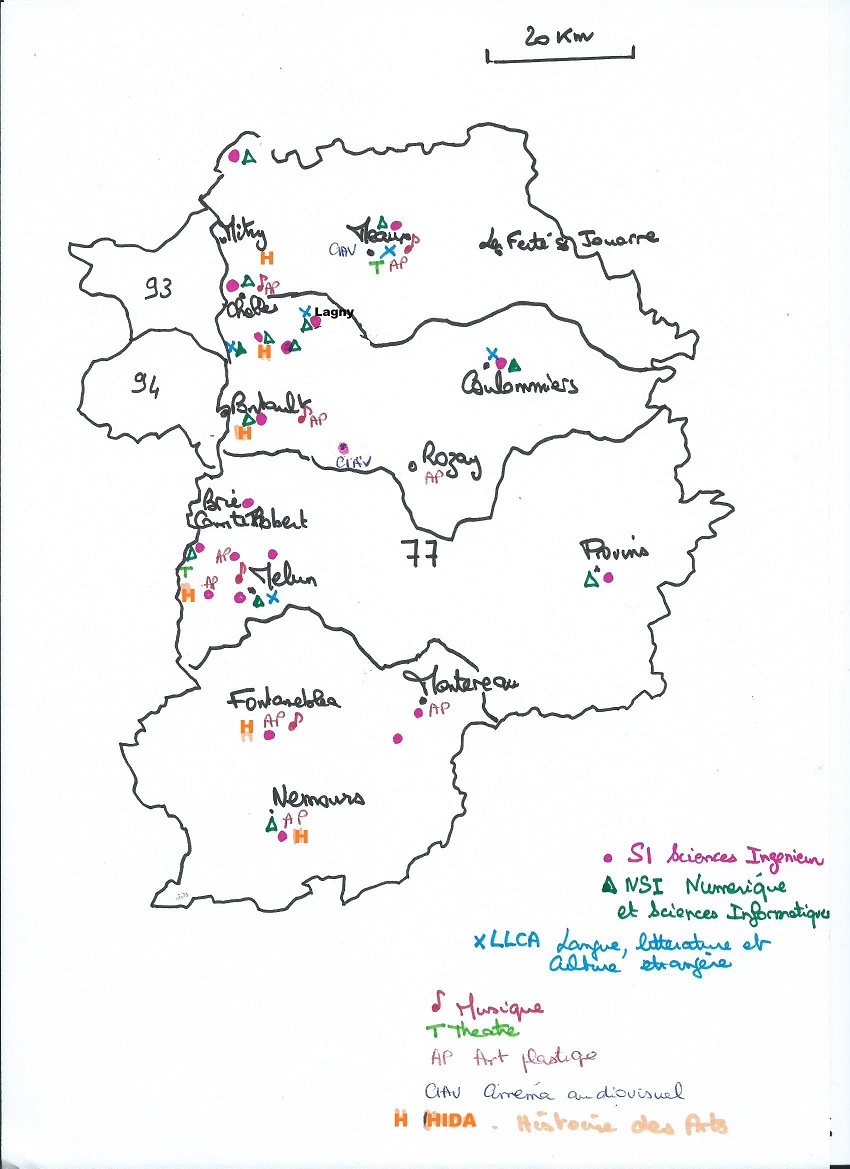 20 Km
Mitry
Meaux
La Ferté s Jouarre
CIAV
AP
T
H
93
AP
Chelles
Lagny
H
94
Coulommiers
Pontault
AP
H
CIAV
Rozay
AP
Brie
Comte Robert
77
Provins
AP
T
Melun
AP
H
Montereau
AP
Fontainebleau
H AP
Nemours
AP
H
SI Sciences Ingénieur
NSI Numérique
et Sciences Informatiques
x LLCA Langue, littérature et
culture étrangère
Musique
T Theatre
AP Art plastiqe
CIAV Cinéma audiovisuel
H HIDA - Histoire des Arts